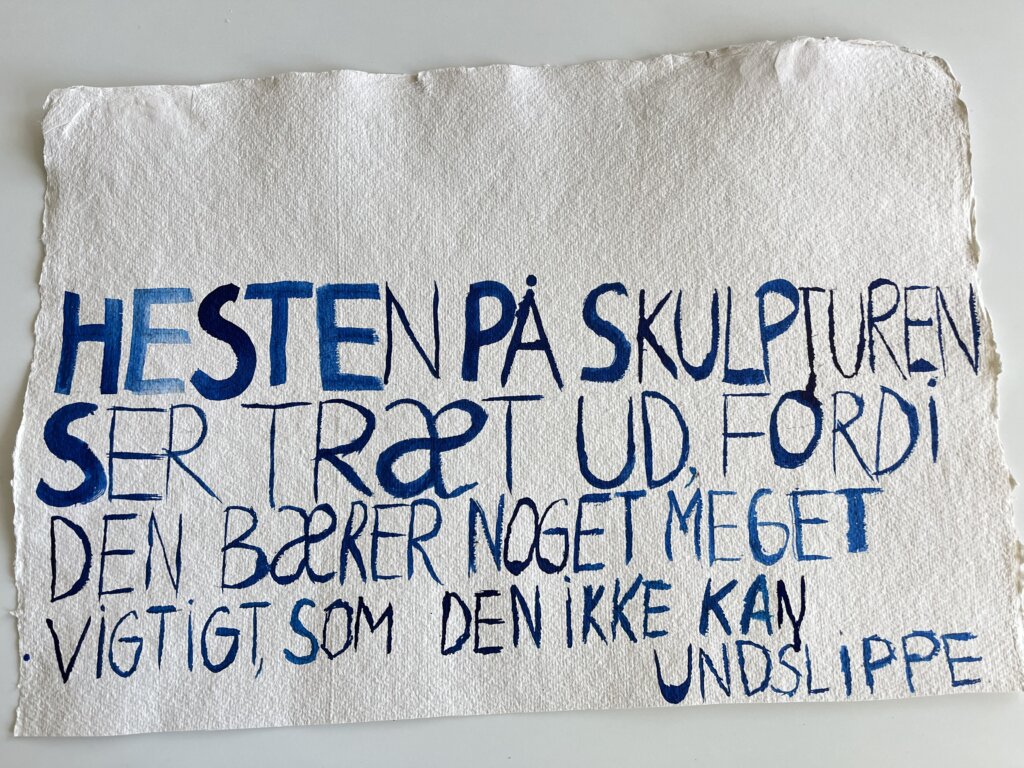 HESTEN PÅ SKULPTUREN
SER TRÆT UD, FORDI
DEN BÆRER NOGET MEGET
VIGTIGT, SOM DEN IKKE KAN
UNDSLIPPE